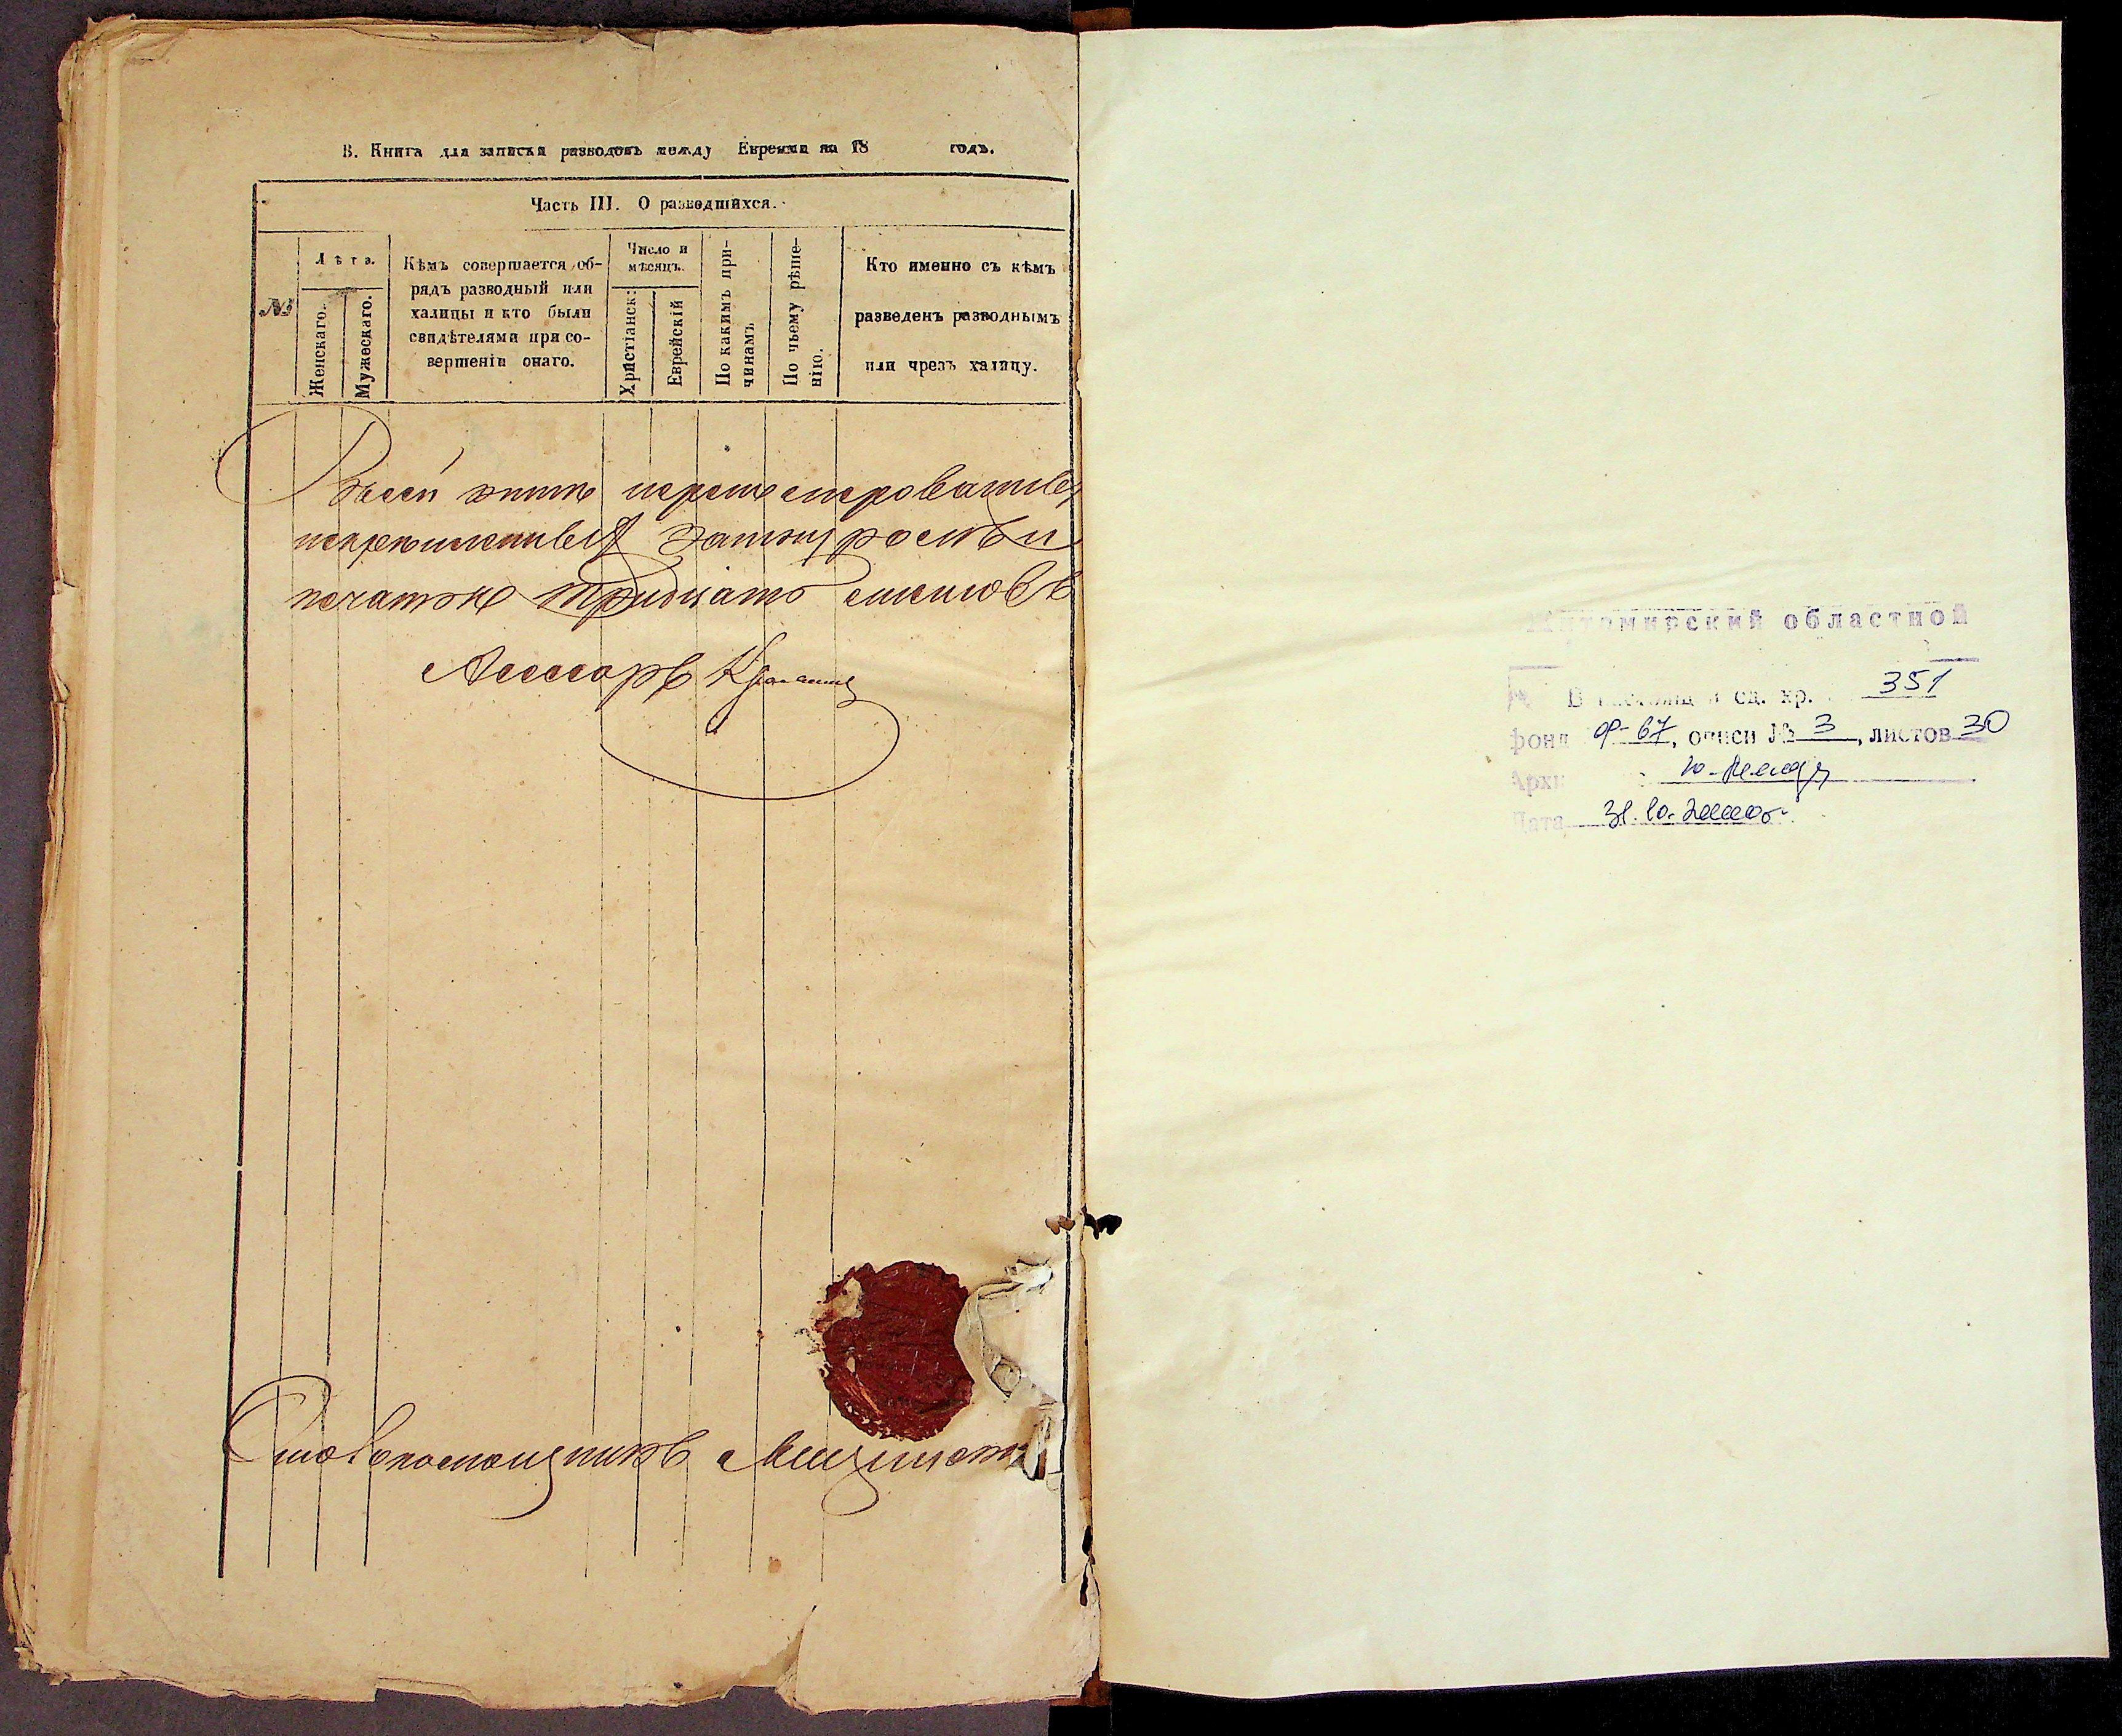 В. Книга для записки разводовъ между Евреями на 18 годъ.
Часть III. О разведшихся.
№
Лѣта.
Женскаго.
Мужескаго.
Кѣмъ совершается об-
рядъ разводный или
халицы и кто были
свидѣтелями при со-
вершеніи онаго.
Число и
мѣсяцъ.
Христіанск:
Еврейскій
По какимъ при-
чинамъ.
По чьему рѣше-
нію.
Кто именно съ кѣмъ
разведенъ разводнымъ
или чрезъ халицу.
Въ сей книге
за шнуромъ и
печатью тридцать листовъ
Ассесоръ
Столоначальникъ
Житомирский областной
ед. хр. 351
фонд Ф-67, описи № 3, листов 30
Дата 31.10.